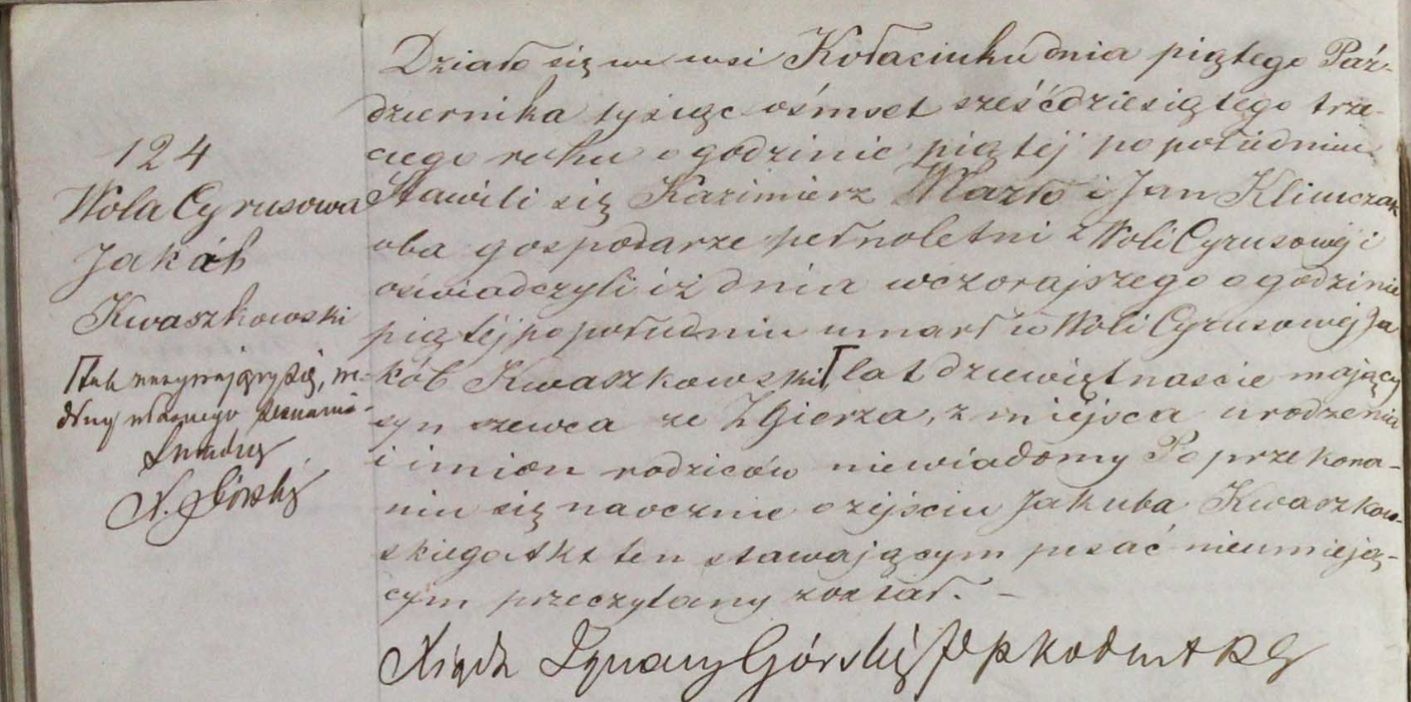 124
Wola Cyrusowa
Jakób
Kwaszkowski
Γ tak nazywający się, we-
dług własnego zeznania
X. Górski
Działo się we wsi Kołacinku dnia piątego Paź-
dziernika tysiąc ośmset sześćdziesiątego trze-
ciego roku o godzinie piątéj po południu
Stawili się Kazimierz Mazło i Jan Klimczak
oba gospodarze pełnoletni z Woli Cyrusowéj i
oświadczyli iż dnia wczorajszego o godzinie
piątéj po południu umarł w Woli Cyrusowéj Ja
kób Kwaszkowski Γ lat dziewiętnaście mający
syn szewca ze Zgierza, z miejsca urodzenia
i imion rodziców niewiadomy Po przekona-
niu się naocznie o zejściu Jakuba Kwaszkow-
skiego Akt ten stawającym pisać nieumieją-
cym przeczytany został. –
Xiądz Ignacy Górski